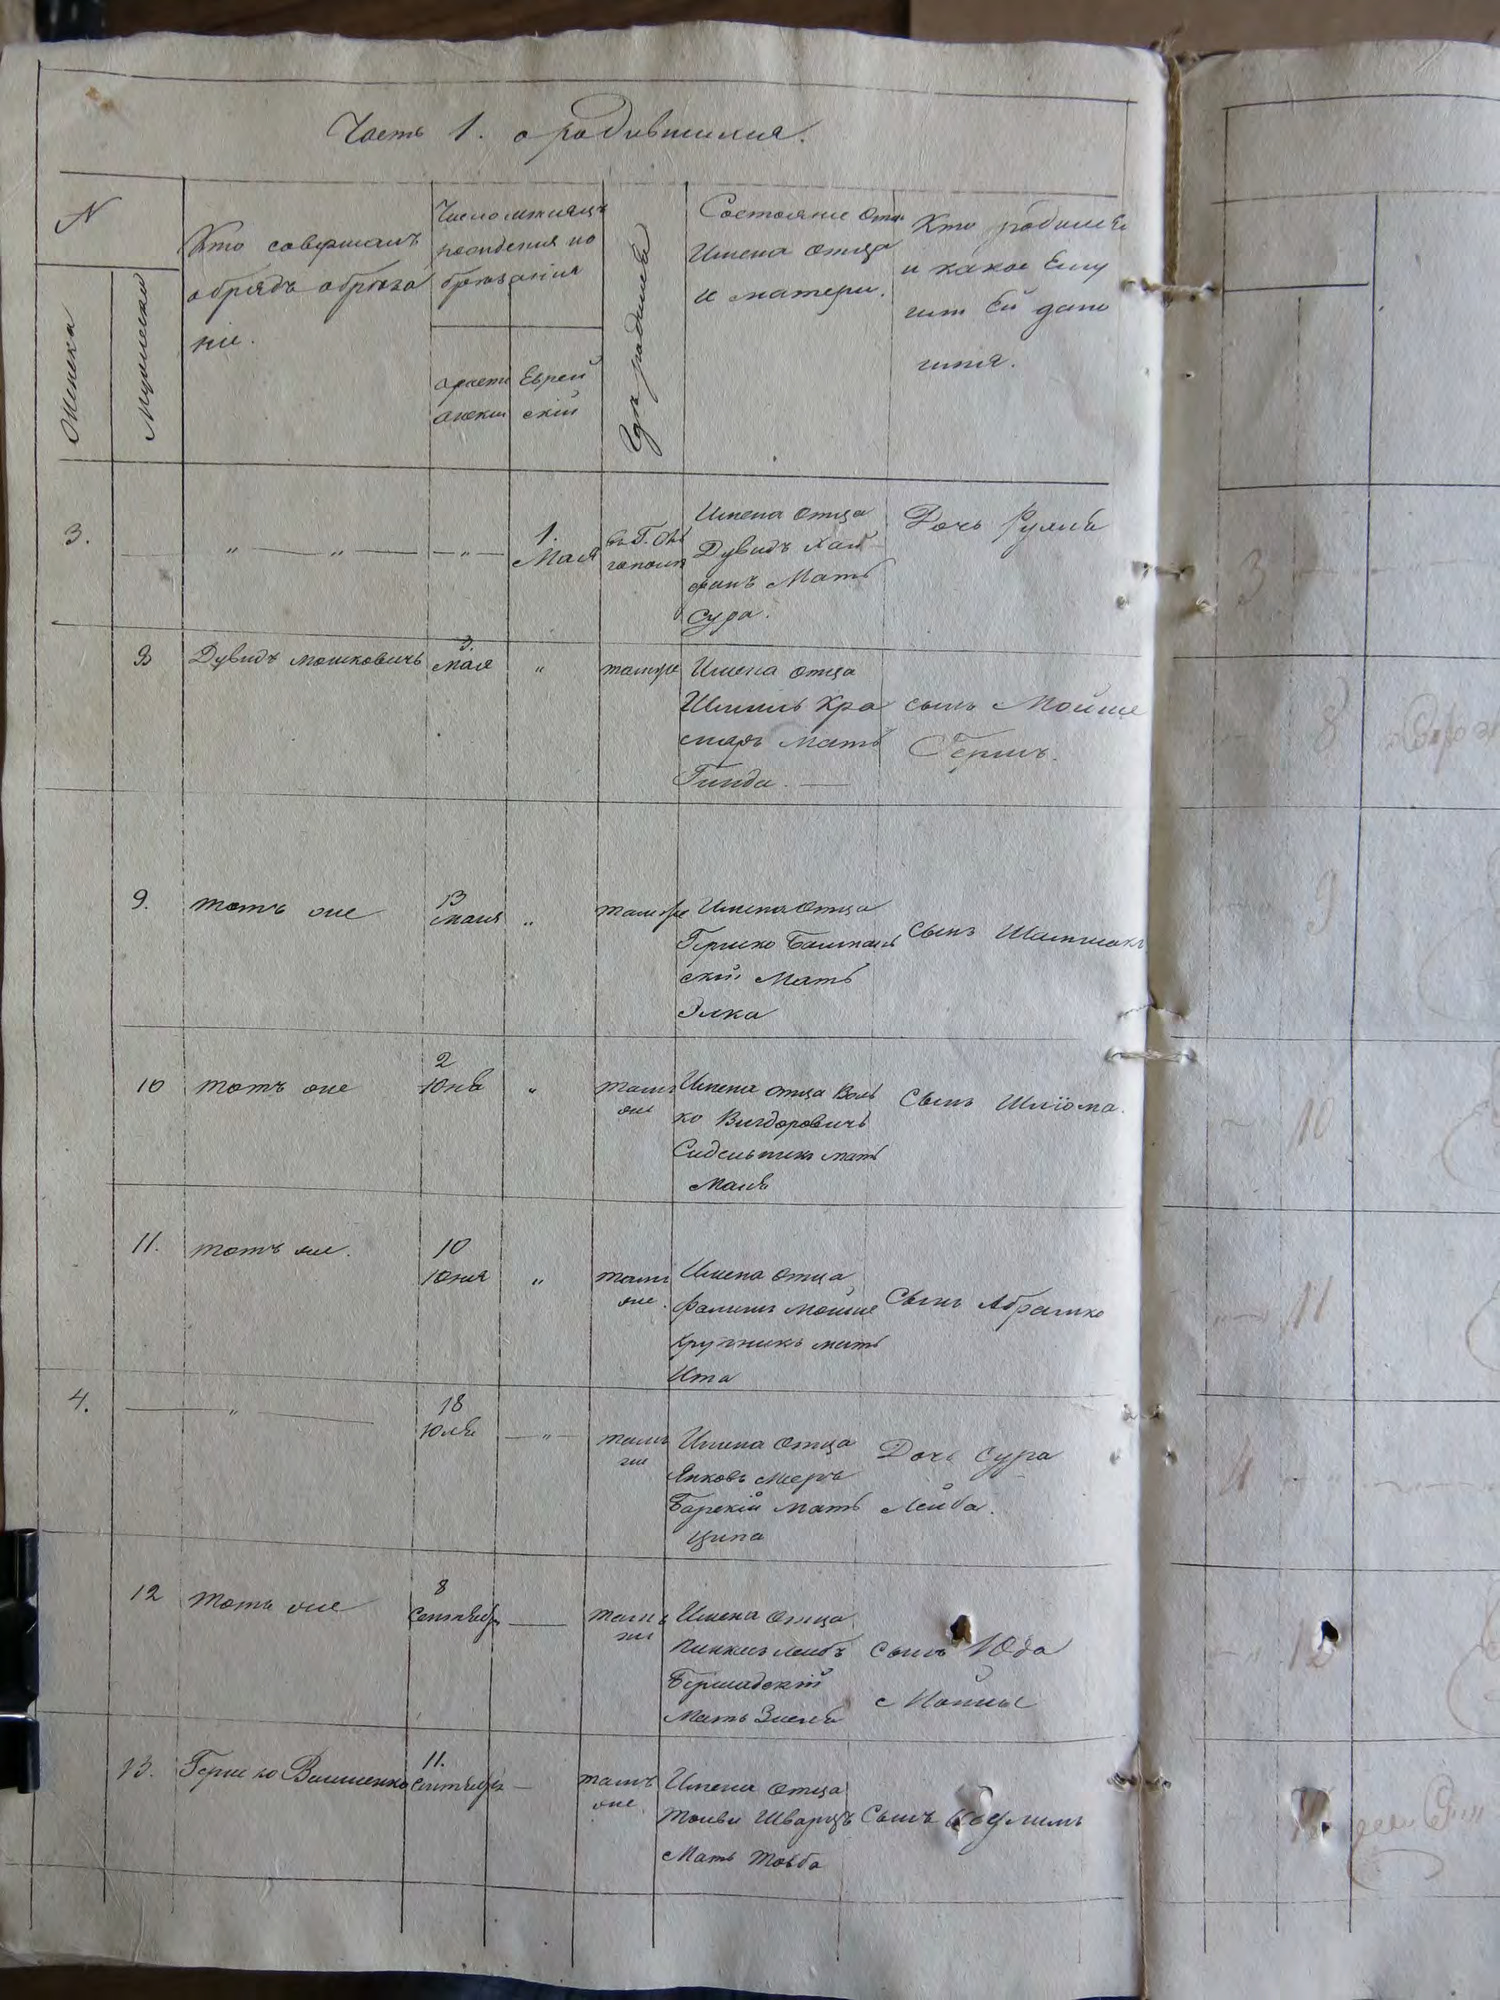 Часть 1. о родившихся.
N
Женска
Мужеска
Кто совершалъ
обрядъ обреза
ние.
Число и мѣсяцъ
рождения и о
брезания
христи
ански
Еврей
скій
Гдѣ родился
Состояние Отца
Имена отца
и матери.
Кто родился
и какое Ему
или Ей дано
имя.
3.
1.
Мая
въ Г. Оль
гополи
Имена отца
Дувидъ
Мать
Сура.
Дочь
8
Дувидъ Мошковичъ
3.
мая
тамже
Имена отца
Шмиль Кра
сыръ Мать
Гинда.
сынъ Мойше
Гершъ.
9.
тотъ же
13
мая
тамже
Имена отца
Гершко
ский Мать
Элка
Сынъ
10
тотъ же
2
Юня
тамъ
же
Имена отца Воль
ко Вигдоровичъ
Сидельникъ мать
Маля
Сынъ Шлиома.
11.
тотъ же.
10
Юня
тамъ
же.
Имена отца
Мойше
Крупникъ мать
Ита
Сынъ Абрамко
4.
18
Юля
тамъ
же
Имена отца
Янковъ Меръ
Барскій Мать
Ципа
Дочь Сура
Лейба.
12
тотъ же
8
Сентября
тамъ
же
Имена отца
Пинкасъ Лейбъ
Бершадскій
Мать
сынъ Юда
Мойше
13.
Гершко
11.
Сентября
тамъ
же
Имена отца
Шварцъ
Мать Товба
Сынъ
3
8
9
10
11
4
12